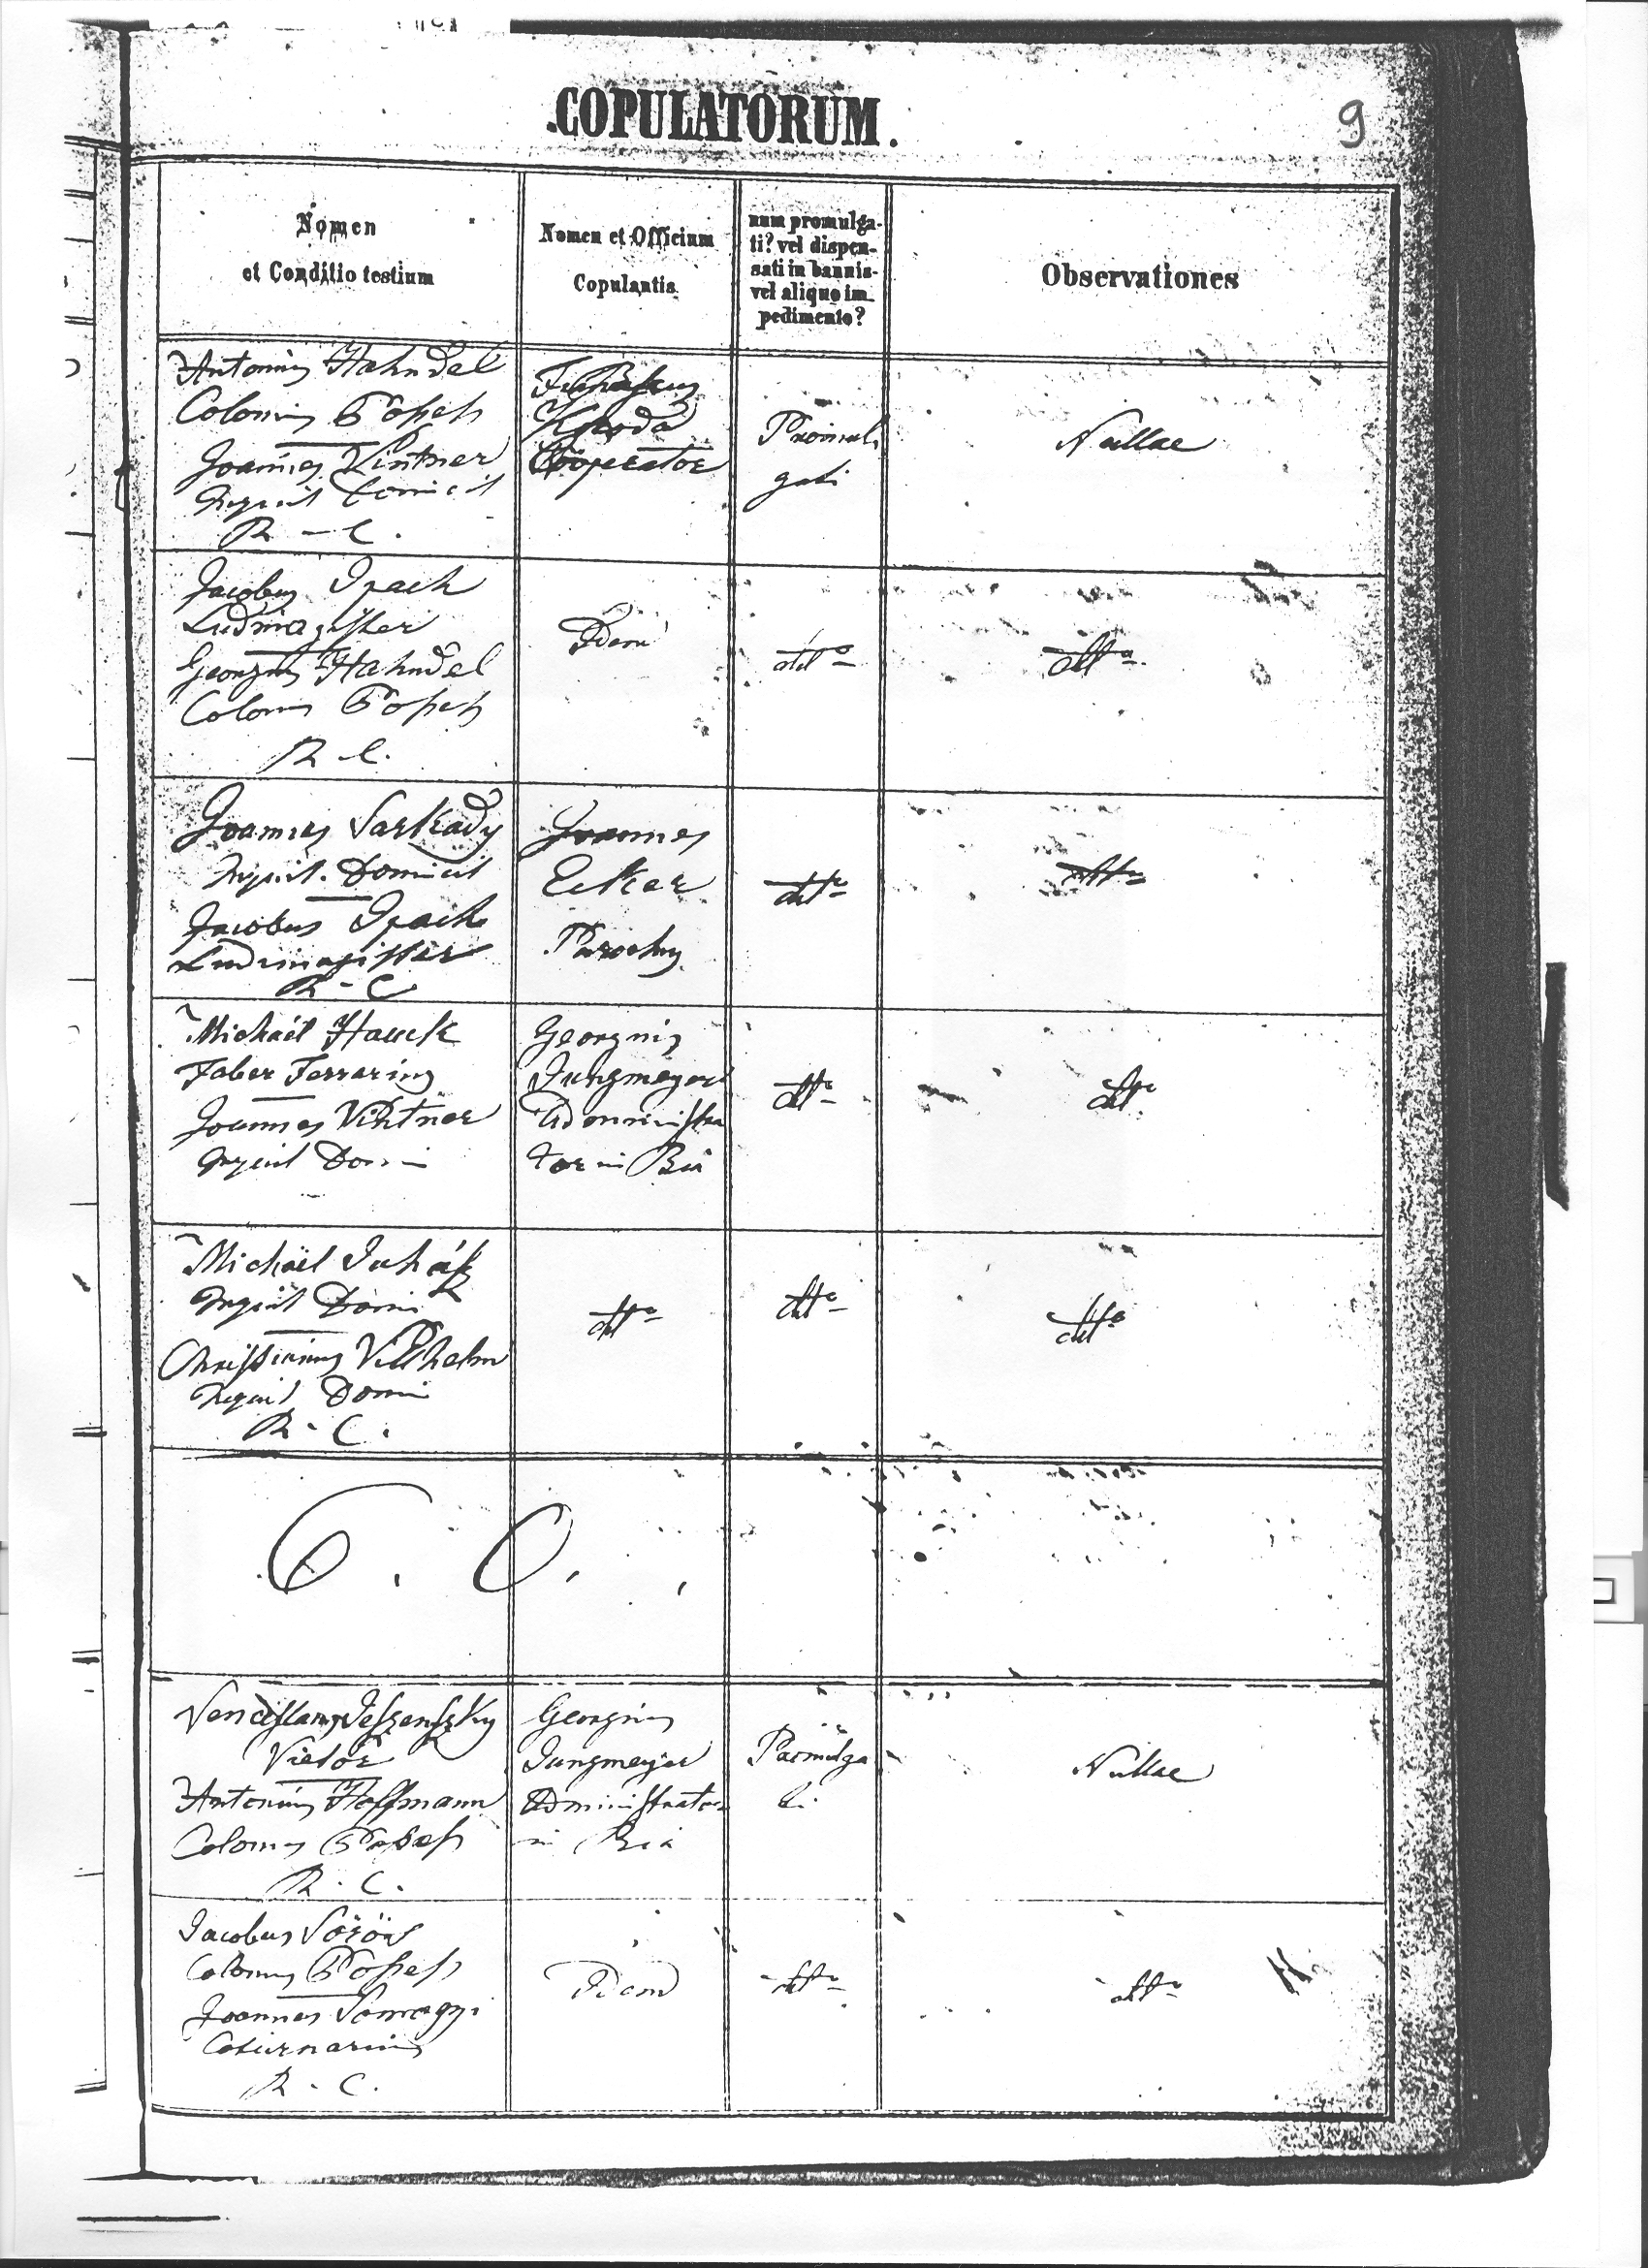 COPULATORUM.
9
Nomen
et Conditio testium
Nomen et Officium
Copulantis
num promulga-
ti? vel dispen-
sati in bannis-
vel aliquo im-
pedimento?
Observationes
Antonius Hahndel
Colonus
Joannes
R - C.
Cooperator
Promul
gati
Nullae
Jacobus
Ludimagister
Georgius Hahndel
Colonus
R C.
Idem
dtto
dtto
Joannes Sarkady
Inquil. Domicil
Jacobus
Ludimagister
R - C
Joannes
Ecker
Parochus
dtto
dtto
Michaël Hauck
Faber Ferrarius
Joannes
Inquil Domi
Georgius
Jungmeyer
Administra
tor in Bia
dtto
dtto
Michaël Juhász
Inquil Domi
Christianus Vilhelm
Inquil Domi
R. C.
dtto
dtto
dtto
Jeszenszky
Vietor
Antonius Hoffmann
Colonus
R. C.
Georgius
Jungmeyer
Administrator
in Bia
Promulga
ti
Nullae
Jacobus Vörös
Colonus
Joannes Somogyi
Coturnarius
R. C.
Idem
dtto
dtto